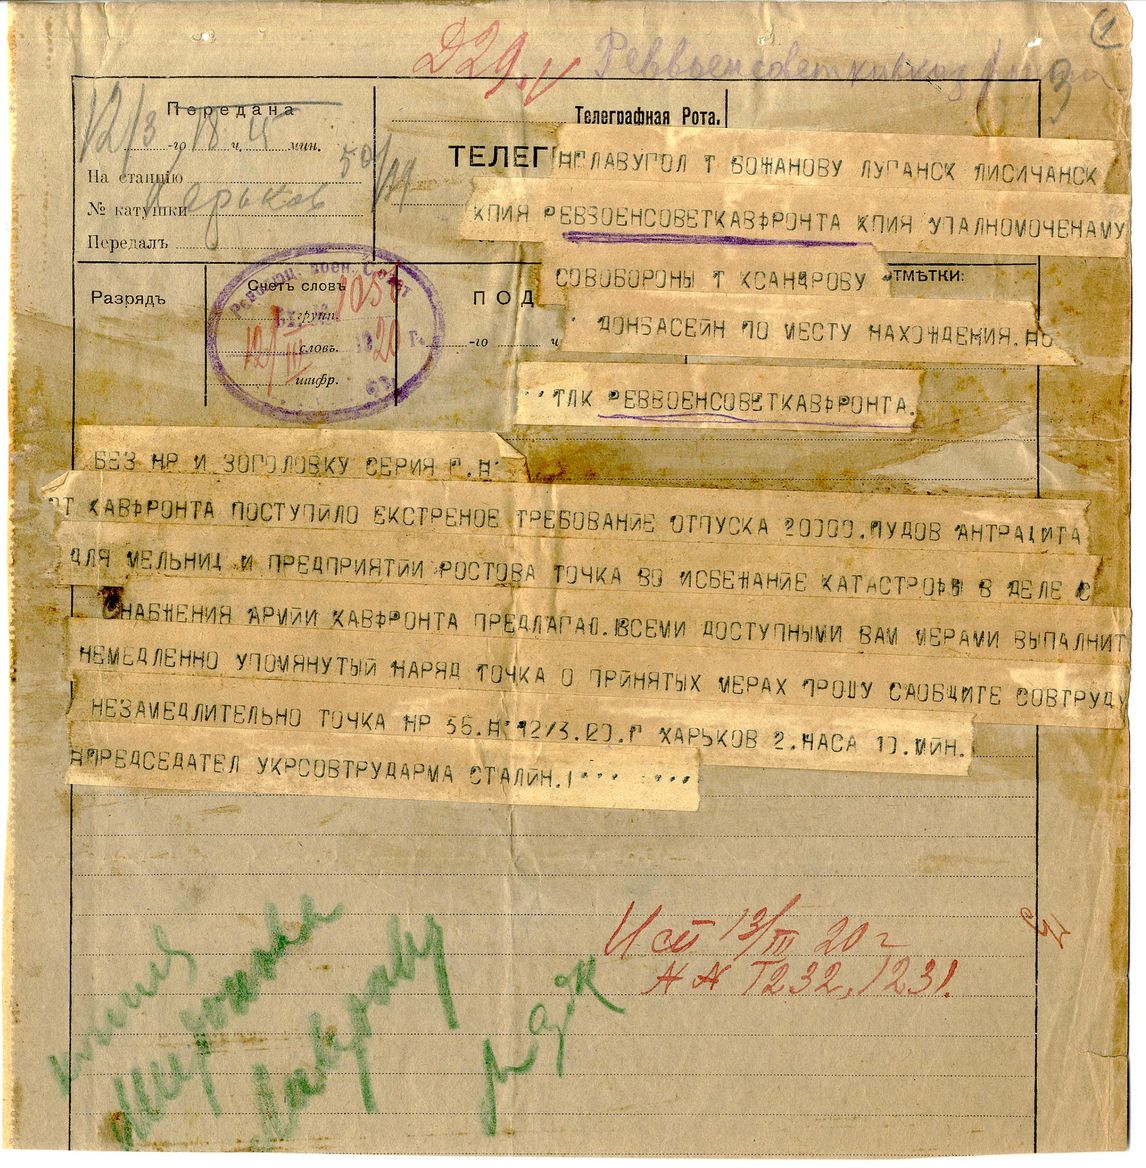 1
Д29.V Реввоенсовет кавказ
3
Передана
12/3 18 ч. 15 мин.
-го
50/19
На станцію
Харьков
№ катушки
Передалъ
Телеграфная Рота.
ТЕЛЕГ
НГЛАВУГОЛ Т БОЖАНОВУ ЛУГАНСК ЛИСИЧАНСК
КПИЯ РЕВЗОЕНСОВЕТКАВФРОНТА КПИЯ УПАЛНОМОЧЕНАМУ
СОВОБОРОНЫ Т КСАНДРОВУ
ОТМѢТКИ:
ДОНБАСЕЙН ПО МЕСТУ НАХОЖДЕНИЯ. НО
ТЛК РЕВВОЕНСОВЕТКАВФРОНТА.
Разрядъ
Счетъ словъ
групп.
словъ.
шифр.
Революц. Воен. Совѣт
1056
12/III 1920 г.
ПОД
-го
ч
БЕЗ НР И ЗОГОЛОВКУ СЕРИЯ Г. Н
ОТ КАВФРОНТА ПОСТУПИЛО ЕКСТРЕНОЕ ТРЕБОВАНИЕ ОТПУСКА 20000. ПУДОВ АНТРАЦИТА
ДЛЯ МЕЛЬНИЦ И ПРЕДПРИЯТИЙ РОСТОВА ТОЧКА ВО ИСБЕЖАНИЕ КАТАСТРОФЫ В ДЕЛЕ С
СНАБЖЕНИЯ АРМИИ КАВФРОНТА ПРЕДЛАГАЮ. ВСЕМИ ДОСТУПНЫМИ ВАМ МЕРАМИ ВЫПАЛНИТ
НЕМЕДЛЕННО УПОМЯНУТЫЙ НАРЯД ТОЧКА О ПРИНЯТЫХ МЕРАХ ПРОШУ САОБЩИТЕ СОВТРУДУ
НЕЗАМЕДЛИТЕЛЬНО ТОЧКА НР 56. Н 12/3. 20. Г ХАРЬКОВ 2. НАСА 10. МИН.
НПРЕДСЕДАТЕЛ УКРСОВТРУДАРМА СТАЛИН. 1
Исп 13/III 20 г
НН 1232, 1231.